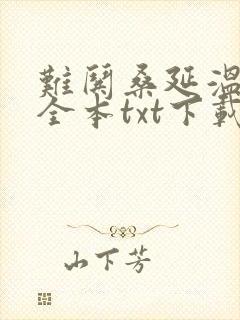 難鬨桑延溫
全本txt下載
山下芳